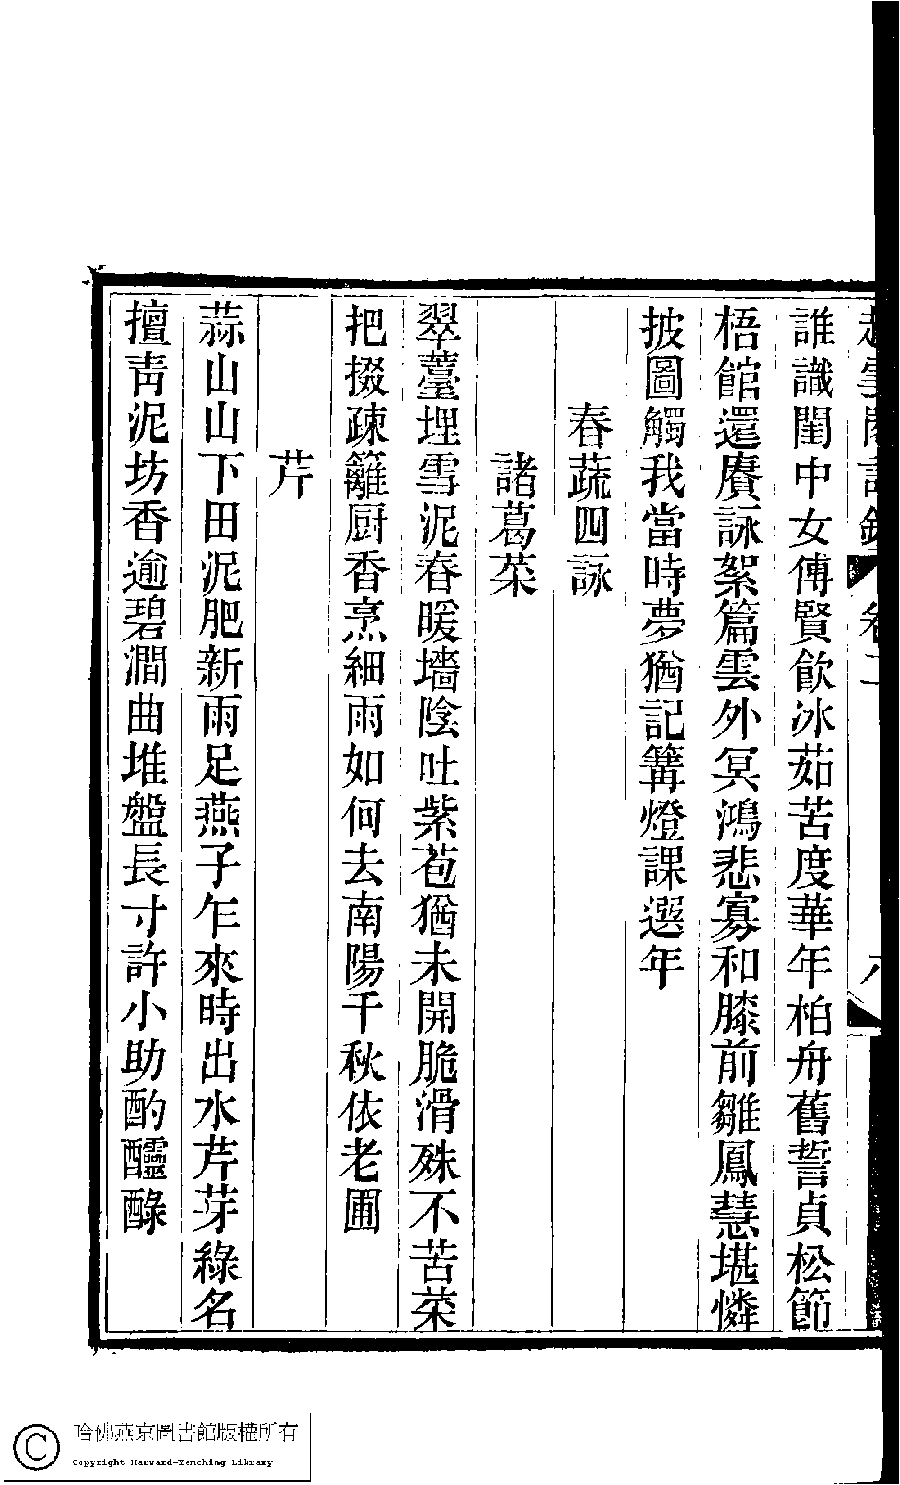 誰識閨中女傅賢飲冰茹苦度華年柏舟舊誓貞松節
梧館還賡詠絮篇雲外冥鴻悲寡和膝前雛鳳慧堪憐
披圖觸我當時夢猶記篝燈課選年
春蔬四詠
諸葛菜
翠薹埋雪泥春暖墻陰吐紫苞猶未開脆滑殊不苦菜
把掇疎籬厨香烹細雨如何去南陽千秋依老圃
芹
蒜山山下田泥肥新雨足燕子乍來時出水芹芽綠名
擅靑泥坊香逾碧澗曲堆盤長寸許小助酌醽醁
哈佛燕京圖書館版權所有
Copyright Harvard-Yenching Library